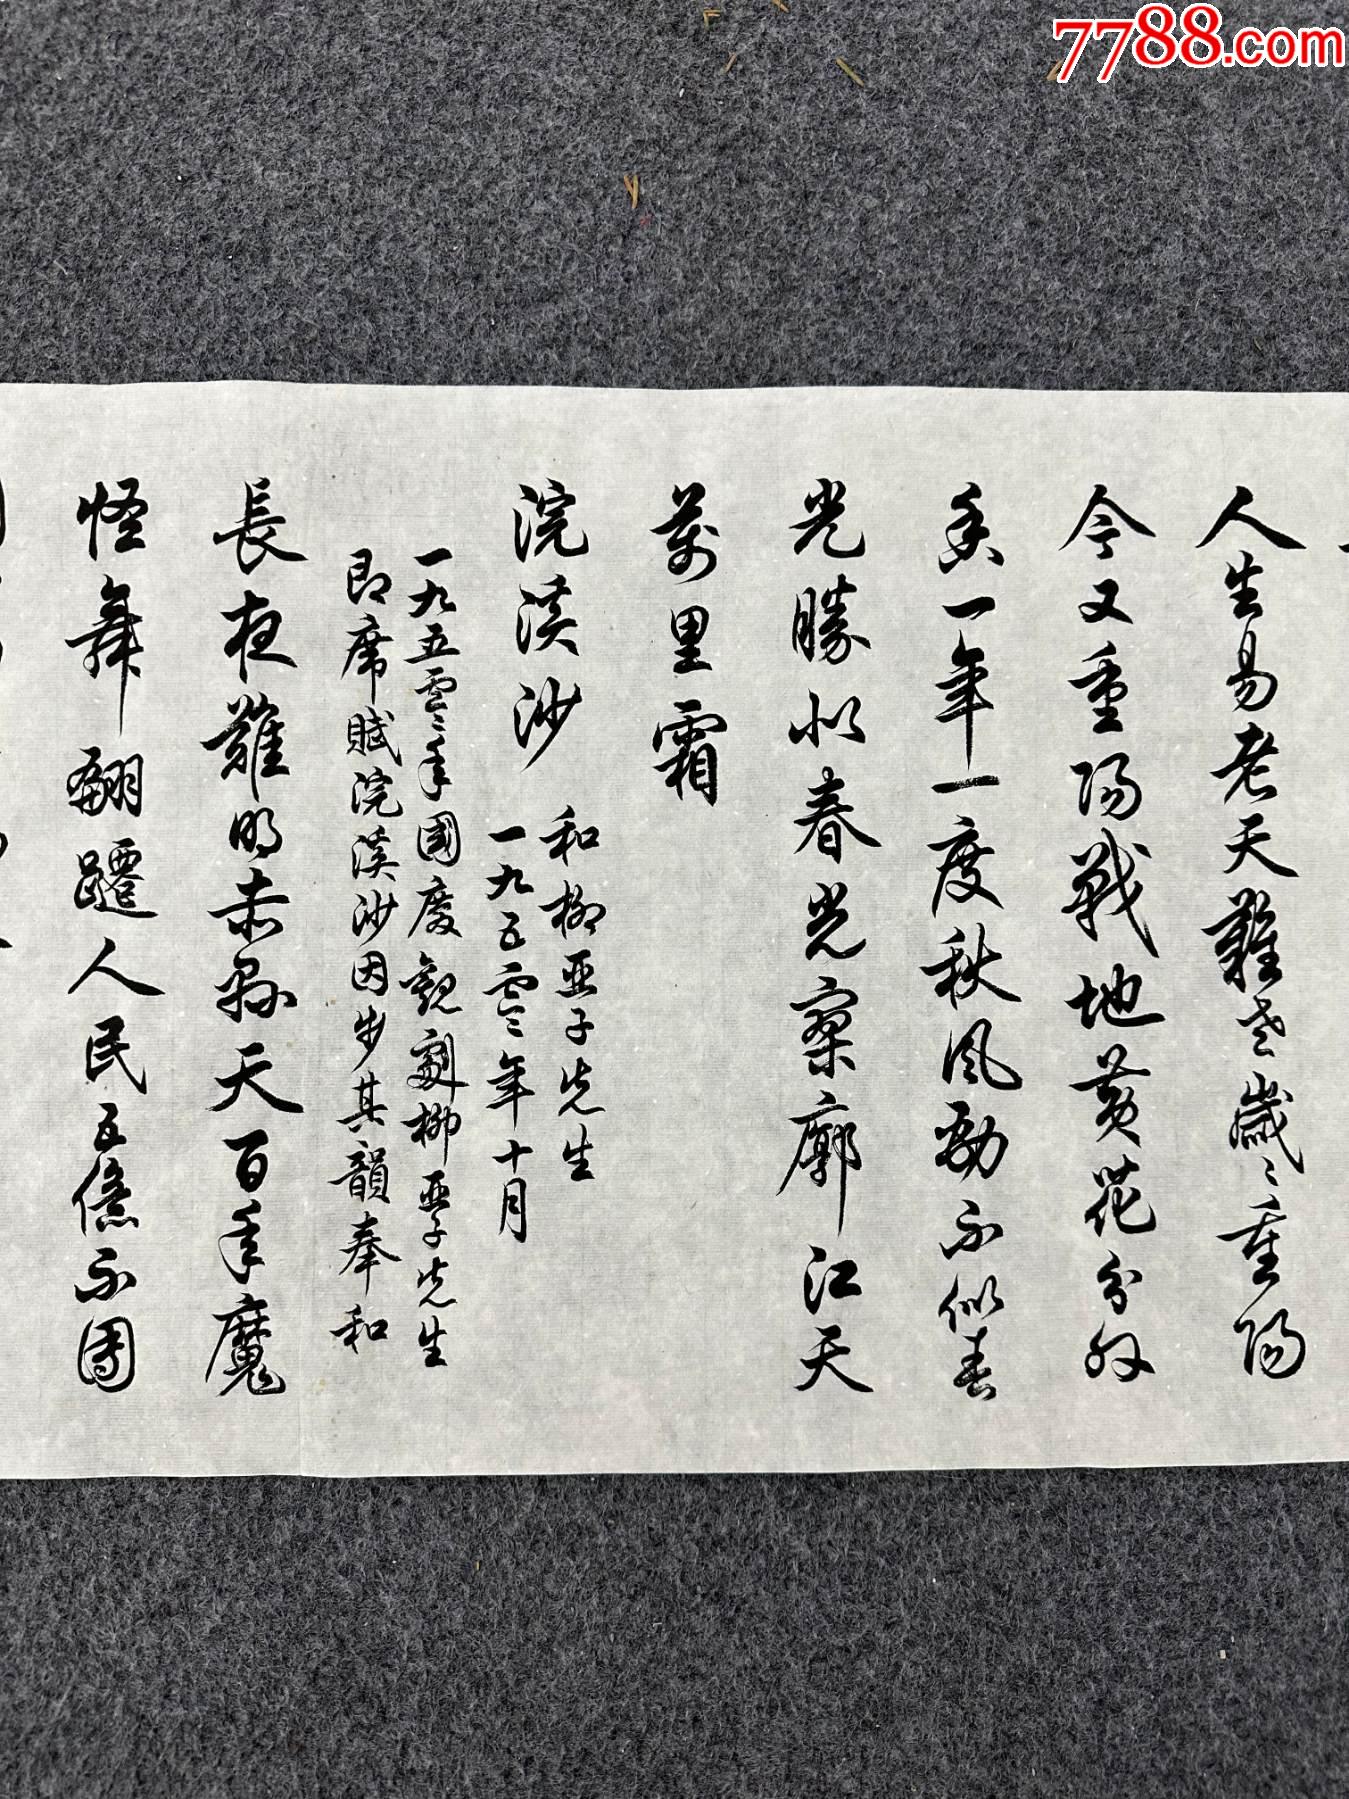 7788.com
人生易老天難老歲々重陽
今又重陽戰地黄花分外
香一年一度秋風勁不似春
光勝似春光寥廓江天
萬里霜
浣溪沙
和柳亞子先生
一九五零年十月
一九五零年國慶觀劇柳亞子先生
即席賦浣溪沙因步其韻奉和
長夜難明赤縣天百年魔
怪舞翩躚人民五億不團